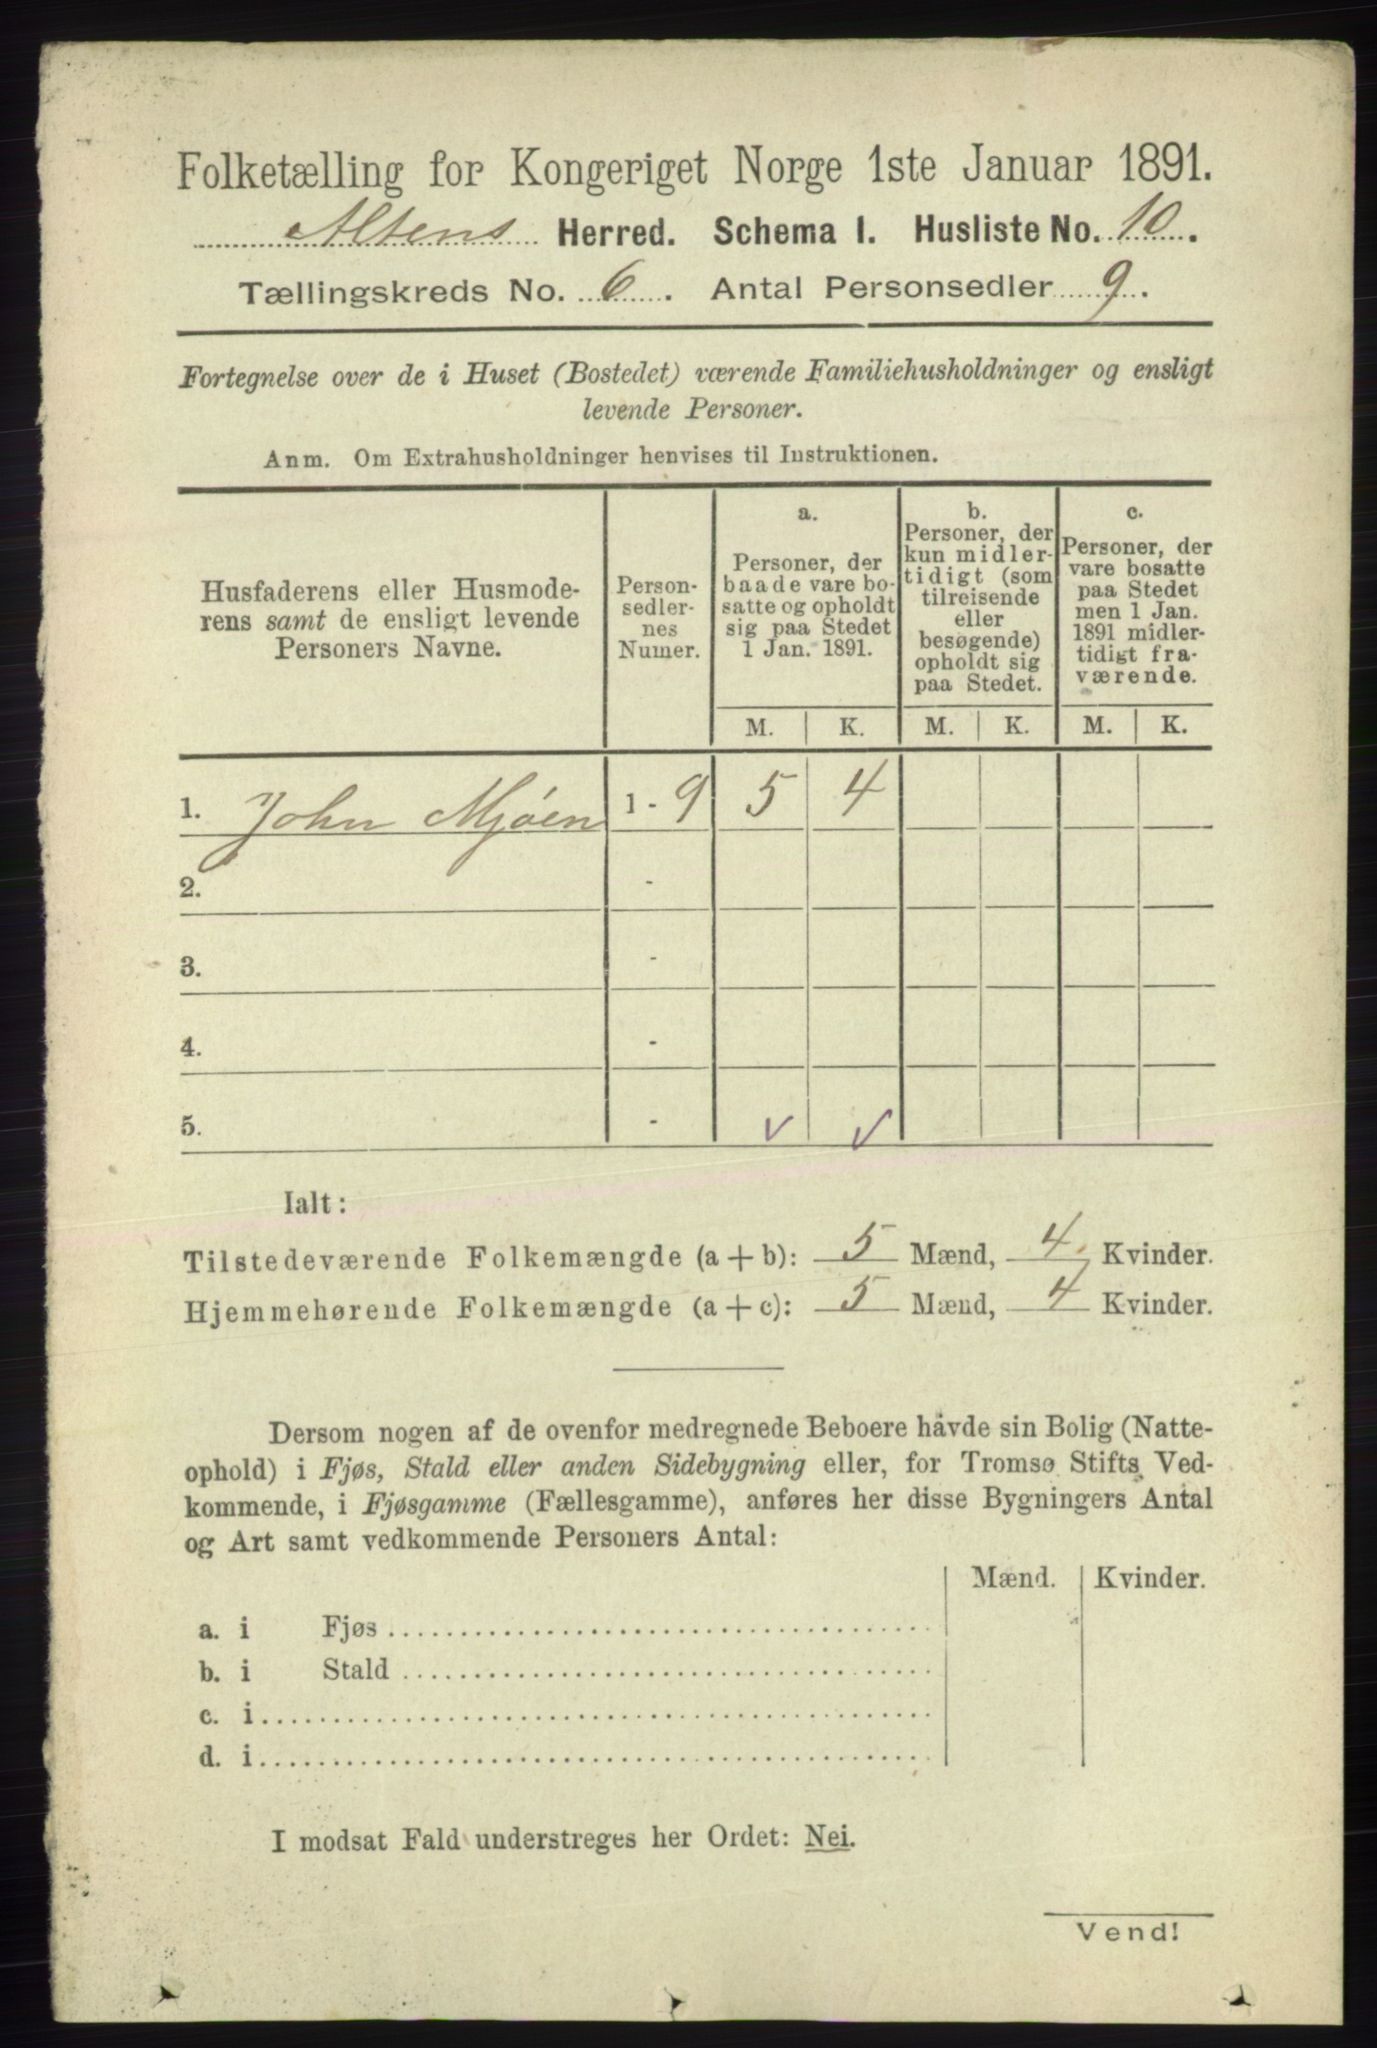 Folketælling for Kongeriget Norge 1ste Januar 1891.
Altens Herred. Schema I. Husliste No. 10.
Tællingskreds No. 6. Antal Personsedler 9.
Fortegnelse over de i Huset (Bostedet) værende Familiehusholdninger og ensligt
levende Personer.
Anm. Om Extrahusholdninger henvises til Instruktionen.
Husfaderens eller Husmode-
rens samt de ensligt levende
Personers Navne.
Person-
sedler-
nes
Numer.
a.
Personer, der
baade vare bo-
satte og opholdt
sig paa Stedet
1 Jan. 1891.
b.
Personer, der
kun midler-
tidigt (som
tilreisende
eller
besøgende)
opholdt sig
paa Stedet.
c.
Personer, der
vare bosatte
paa Stedet
men 1 Jan.
1891 midler-
tidigt fra-
værende.
M. K. M. K. M. K.
1. John Mjöen 1 - 9 5 4
2. -
3. -
4. -
5. - ✓ ✓
Ialt:
Tilstedeværende Folkemængde (a + b): 5 Mænd, 4 Kvinder.
Hjemmehørende Folkemængde (a + c): 5 Mænd, 4 Kvinder.
Dersom nogen af de ovenfor medregnede Beboere havde sin Bolig (Natte-
ophold) i Fjøs, Stald eller anden Sidebygning eller, for Tromsø Stifts Ved-
kommende, i Fjøsgamme (Fællesgamme), anføres her disse Bygningers Antal
og Art samt vedkommende Personers Antal:
Mænd. Kvinder.
a. i Fjøs
b. i Stald
c. i
d. i
I modsat Fald understreges her Ordet: Nei.
Vend!